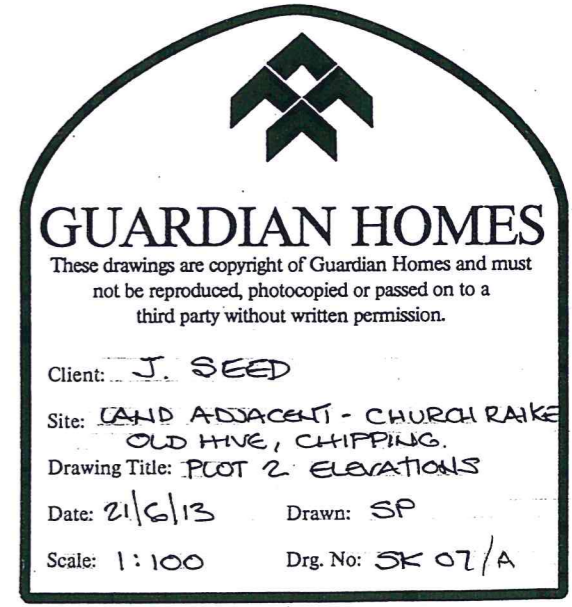 GUARDIAN HOMES
These drawings are copyright of Guardian Homes and must
not be reproduced, photocopied or passed on to a
third party without written permission.
Client: J. SEED
Site: LAND ADJACENT - CHURCH RAIKE
OLD HIVE, CHIPPING.
Drawing Title: PLOT 2 ELEVATIONS
Date: 21/6/13 Drawn: SP
Scale: 1:100 Drg. No: SK 07/A